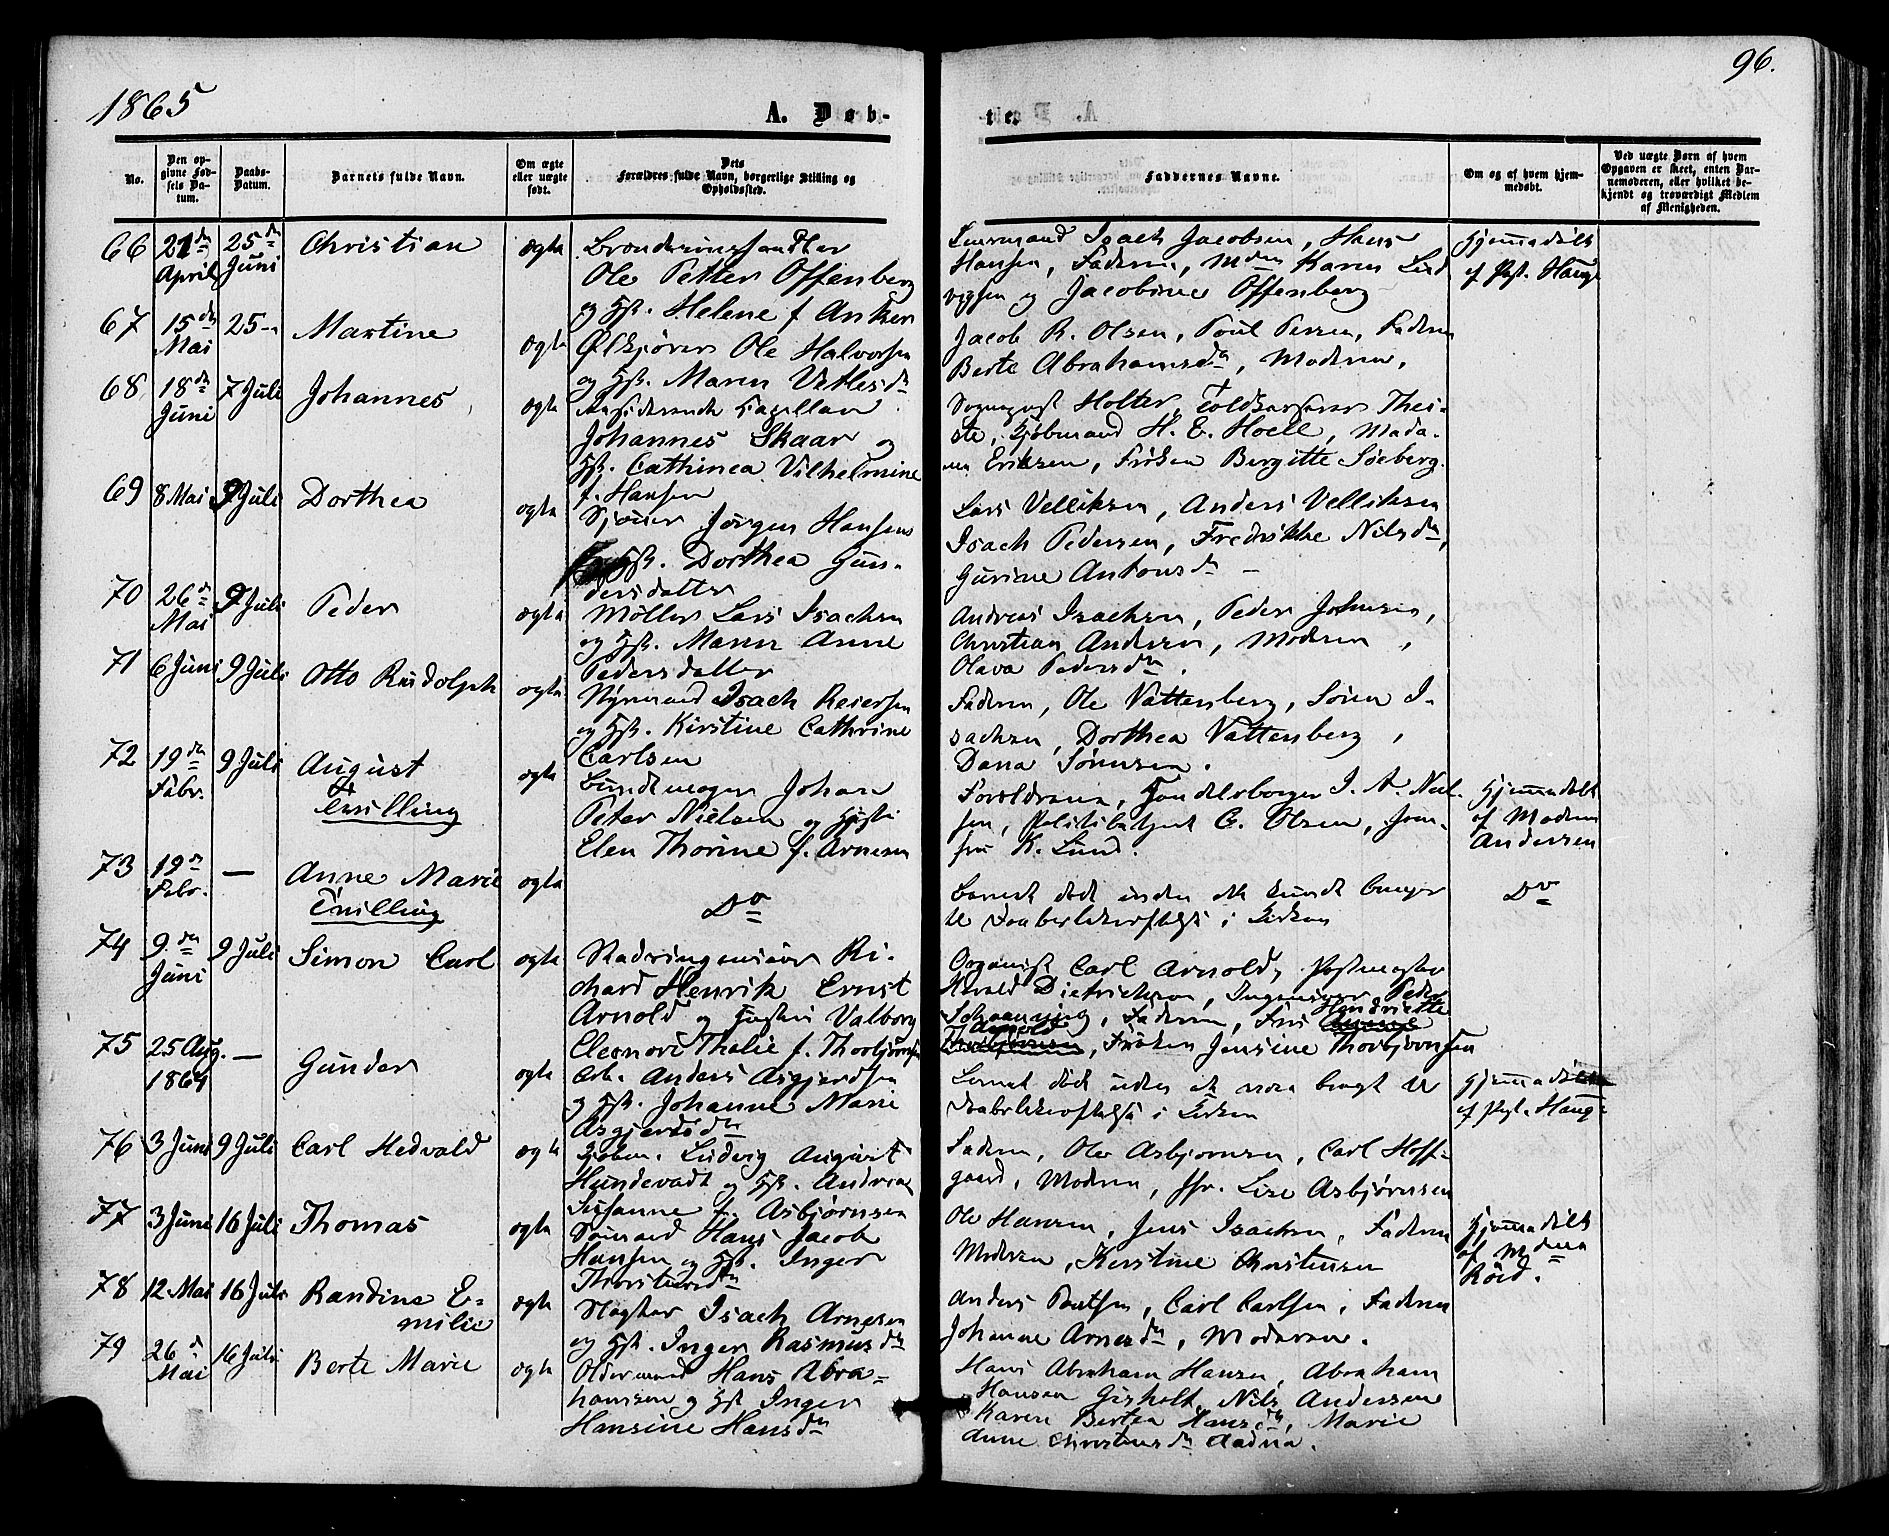 1865
96.
A. Døb-
te.
No.
Den op-
givne Fød-
sels Da-
tum.
Daabs-
Datum.
Barnets fulde Navn.
Om ægte
eller uægte
født.
Dets
Forældres fulde Navn, borgerlige Stilling og
Opholdssted.
Faddernes Navne.
Om og af hvem hjem-
medøbt.
Ved uægte Børn af hvem
Opgaven er skeet, enten Bar-
nemoderen, eller hvilket be-
kjendt og troværdigt Medlem
af Menigheden.
66 21de April 25de Juni Christian ægte
Ole Petter Offenberg
og Hst. Helene f. Anker
Isach Jacobsen, Hans
Hansen, Faderen, Mdm Karen Lud
vigsen og Jacobine Offenberg
Hjemmedøbt
af Pgl. Haug
67 15de Mai 25 Martine ægte
Ole Halvorsen
og Hst. Maren Vetlesdr
Jacob R. Olsen, Poul Persen, Faderen
Berte Abrahamsdr, Moderen,
68 18de Juni 7 Juli Johannes ægte
Residerende Kapellan
Johannes Skaar og
Hst. Cathinca Vilhelmine
f. Hansen
Sognepgst Holter, Toldkasserer Thei-
ste, Kjøbmand H. E. Hoell, Mada-
me Eriksen, Frøken Bergitte Søeberg.
69 8 Mai 9 Juli Dorthea ægte
Jørgen Hansen
og Hst. Dorthea Gun-
dersdatter
Lars Velliksen, Anders Velliksen
Isach Pedersen, Fredrikke Nilsdr,
Gurine Antonsdr
70 26de Mai 9 Juli Peder ægte
Møller Lars Isachsen
og Hst. Maren Anne
Pedersdatter
Andreas Isachsen, Peder Johnsen,
Christian Andersen, Moderen,
Olava Pedersdr.
71 6 Juni 9 Juli Otto Rudolph ægte
Isach Reiersen
og Hst. Kirstine Cathrine
Carlsen
Faderen, Ole Vattenberg, Søren I-
sachsen, Dorthea Vattenberg,
Dana Sørensen.
72 19de Febr. 9 Juli August
Tvilling
ægte
Bundtmager Johan
Peter Nielsen og Hustru
Elen Thorine f. Arnesen
Forældrene, Handelsborger J. A. Niel-
sen, Politibetjent C. Olsen, Jom-
fru K. Lund.
Hjemmedøbt
af Madm
Andersen
73 19de Febr. — Anne Marie
Tvilling
ægte
Do
Barnet døde inden det kunde bringes
til Daabsbekræftelse i Kirken
Do
74 9de Juni 9 Juli Simon Carl ægte
Stadsingeniør Ri-
chard Henrik Ernst
Arnold og Hustru Valborg
Eleonore Thalie f. Thorbjørnsen
Organist Carl Arnold, Postmester
Harald Dietrichson, Ingeniør Peder
Schwenning, Faderen, Fru Hendriette
Arnold, Frøken Jensine Thorbjørnsen
75 25 Aug. 1864 — Gunder ægte
Arb. Anders Asgjerdsen
og Hst. Johanne Marie
Asgjersdr
Barnet døde uden at være bragt til
Daabsbekræftelse i Kirken
Hjemmedøbt
af Pgl. Haug
76 3 Juni 9 Juli Carl Hedvald ægte
Kjøbm. Ludvig August
Hundevadt og Hst. Andrea
Susanne f. Asbjørnsen
Faderen, Ole Asbjørnsen, Carl Hoff-
gaard, Moderen, Jfr. Lise Asbjørnsen
77 3 Juni 16 Juli Thomas ægte
Sømand Hans Jacob
Hansen og Hst. Inger
Thorstensdr
Ole Hansen, Jens Isachsen, Faderen
Moderen, Kirstine Christensen
Hjemmedøbt
af Mdme
Röed.
78 12 Mai 16 Juli Randine E-
milie
ægte
Slagter Isach Arnesen
og Hst. Inger Rasmusdr
Anders Bentsen, Carl Carlsen, Faderen
Johanne Arnesdr, Moderen.
79 26de Mai 16 Juli Berte Marie ægte
Oldermand Hans Abra-
hamsen og Hst Inger
Hansine Hansdr
Hans Abraham Hansen, Abraham
Hansen Gisholt, Nils Andersen
Karen Bertea Hansdr, Marie
Anne Christensdr